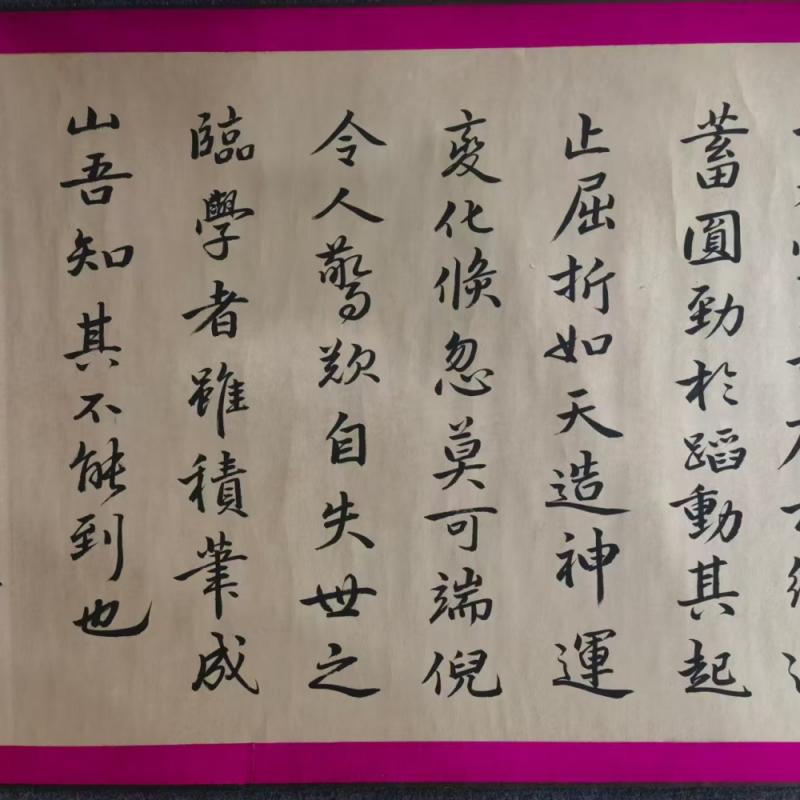 蓄圓勁於蹈動其起
止屈折如天造神運
變化倏忽莫可端倪
令人驚歎自失世之
臨學者雖積筆成
山吾知其不能到也